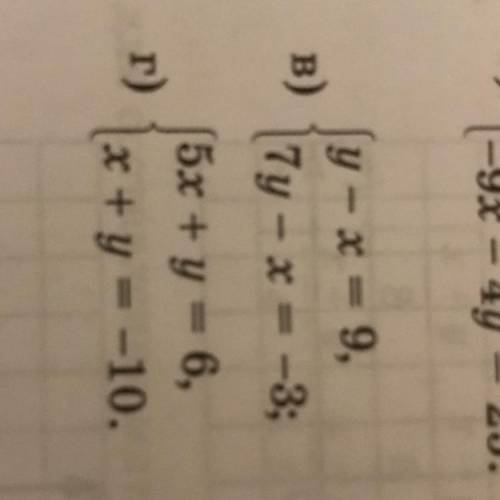 -9x - 4y =
в) { y - x = 9,
7y - x = -3;
г) { 5x + y = 6,
x + y = -10.